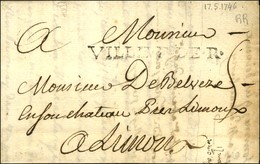 17.5.1746
RR
A Monsieur
VILLE
Monsieur De Belveze
En son chateau Peer Limoux
A Limoux